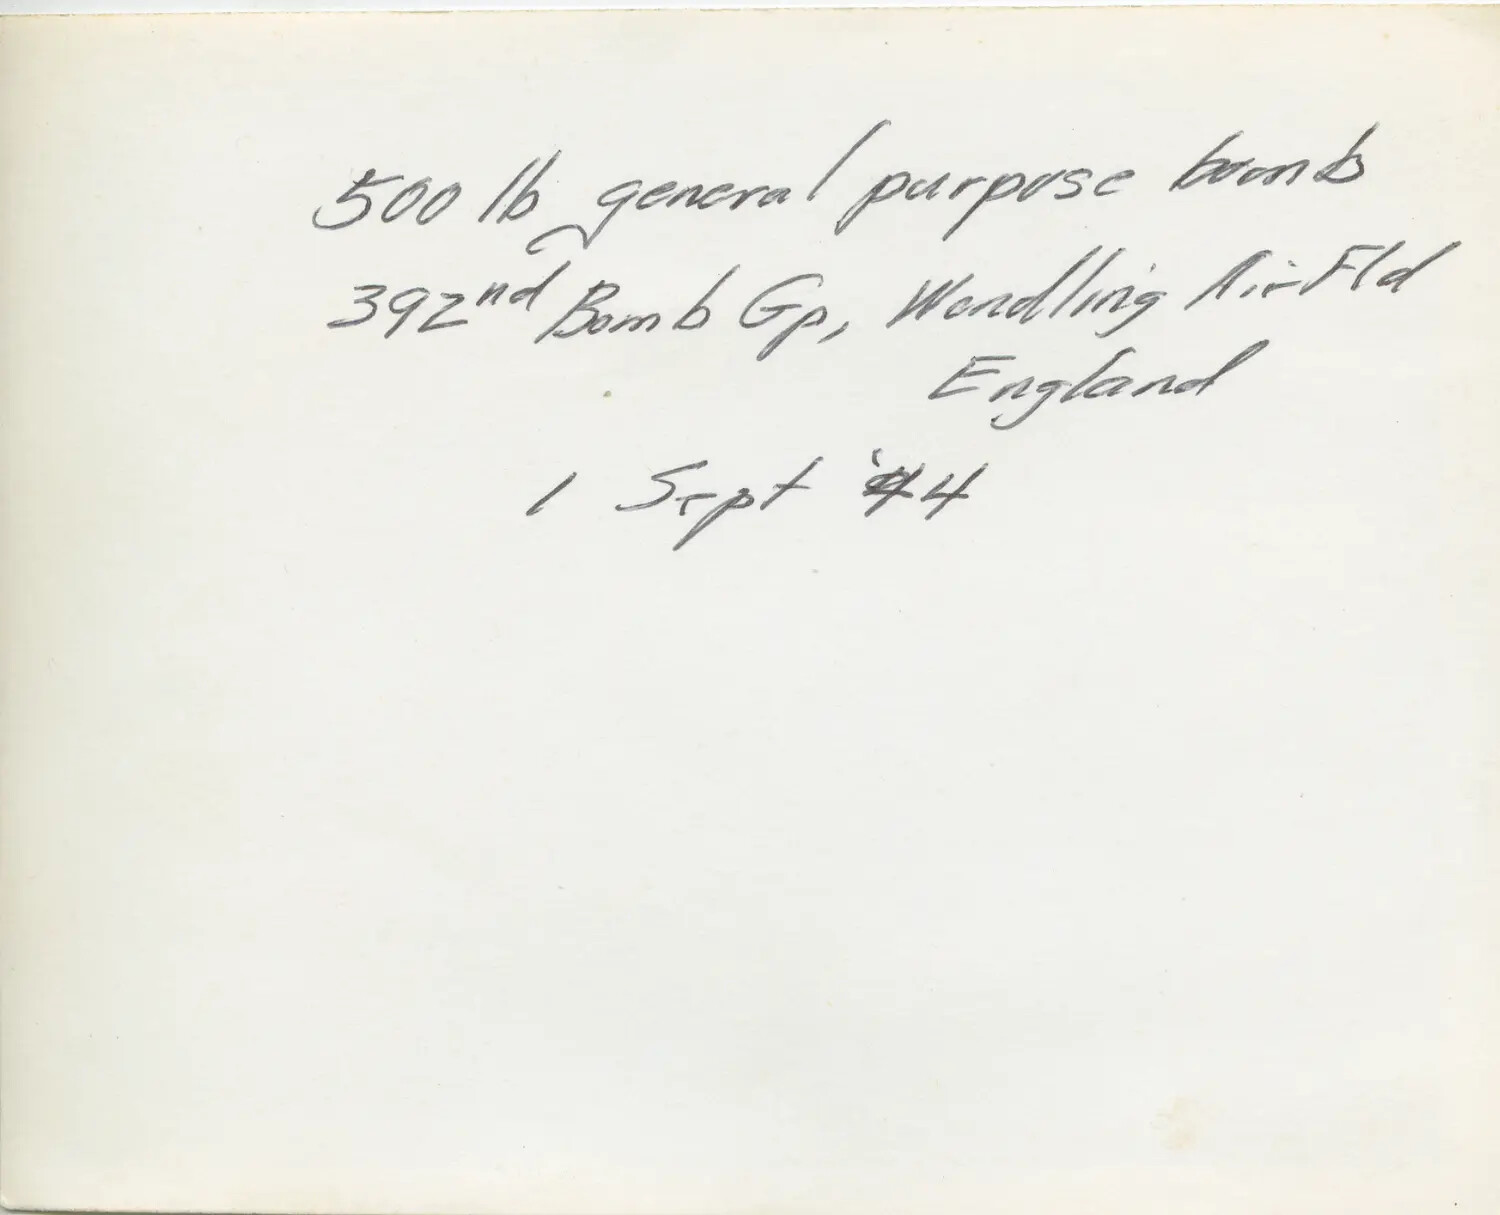 500 lb general purpose bombs
392nd Bomb Gp, Wendling Air Fld
England
1 Sept '44